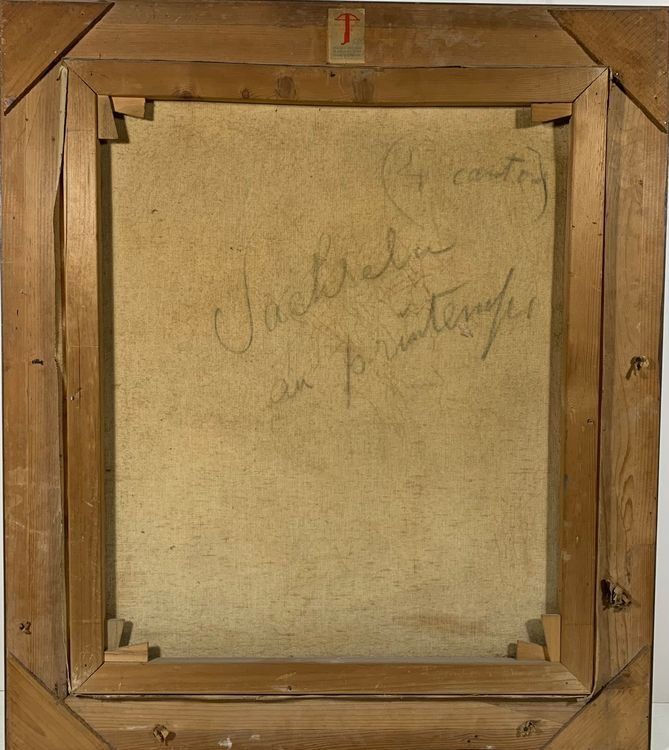 (4 cantons)
Sachseln
au printemps